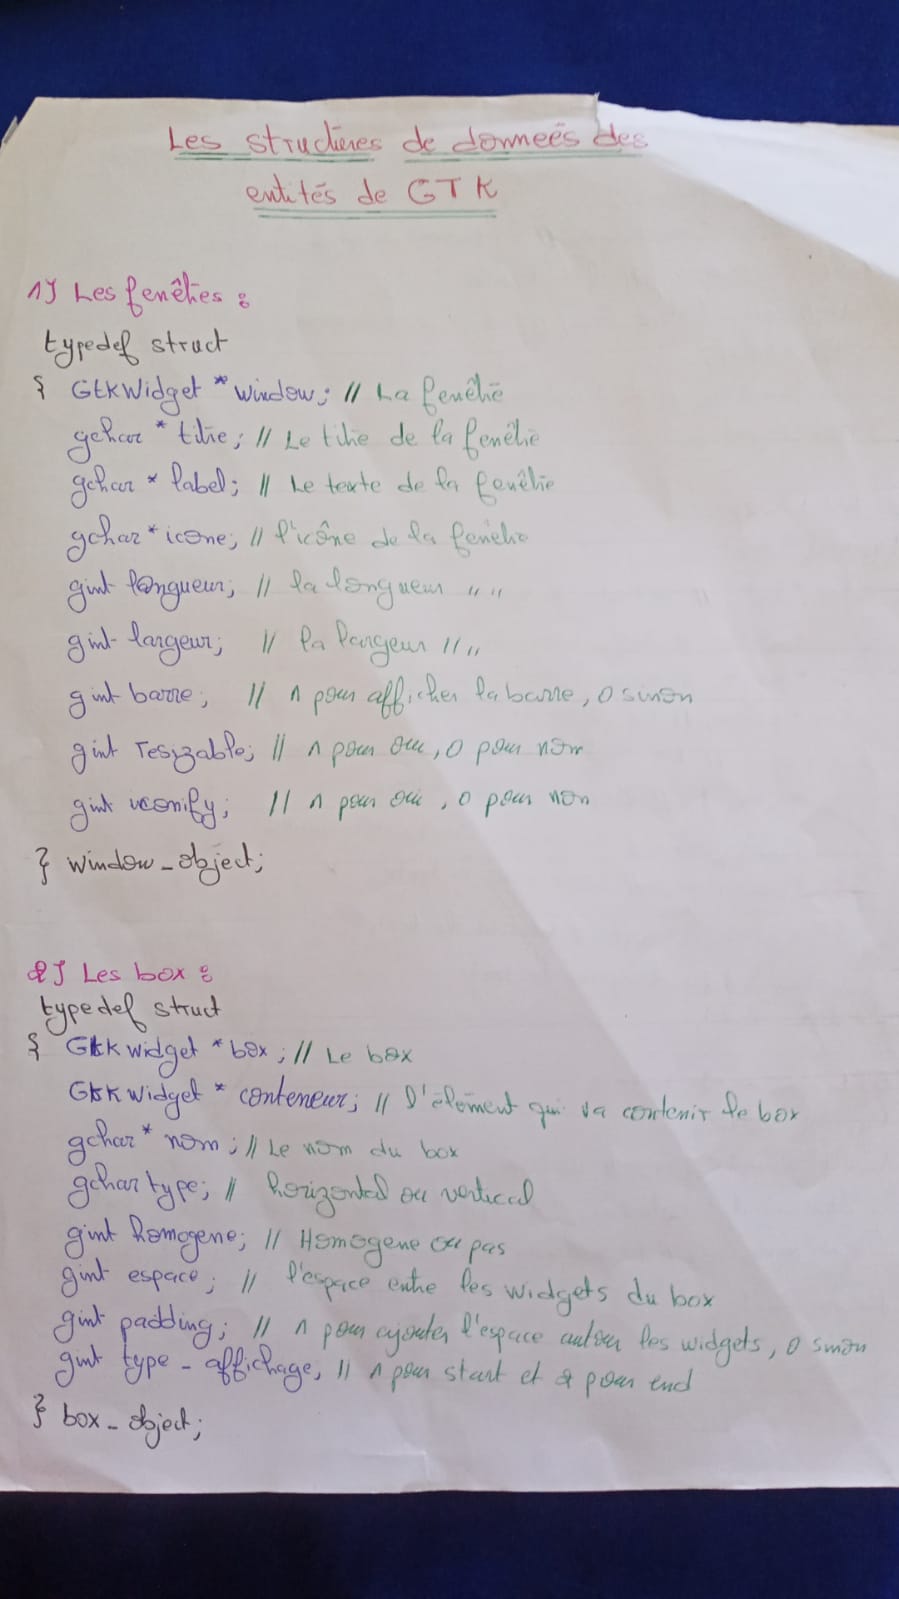 Les structures de données des
entités de GTK
1) Les fenêtres :
typedef struct
{ GtkWidget *window; // La fenêtre
gchar * titre; // Le titre de la fenêtre
gchar * label; // Le texte de la fenêtre
gchar* icone; // l'icône de la fenêtre
gint longueur; // la longueur " "
gint largeur; // la largeur " "
gint barre; // 1 pour afficher la barre, 0 sinon
gint resizable; // 1 pour oui, 0 pour non
gint iconify; // 1 pour oui, 0 pour non
} window_object;
2) Les box :
typedef struct
{ GtkWidget *box; // Le box
GtkWidget * conteneur; // l'élément qui va contenir le box
gchar* nom; // Le nom du box
gchar type; // horizontal ou vertical
gint homogene; // Homogene ou pas
gint espace; // l'espace entre les widgets du box
gint padding; // 1 pour ajouter l'espace autour les widgets, 0 sinon
gint type_affichage, // 1 pour start et 2 pour end
} box_object;